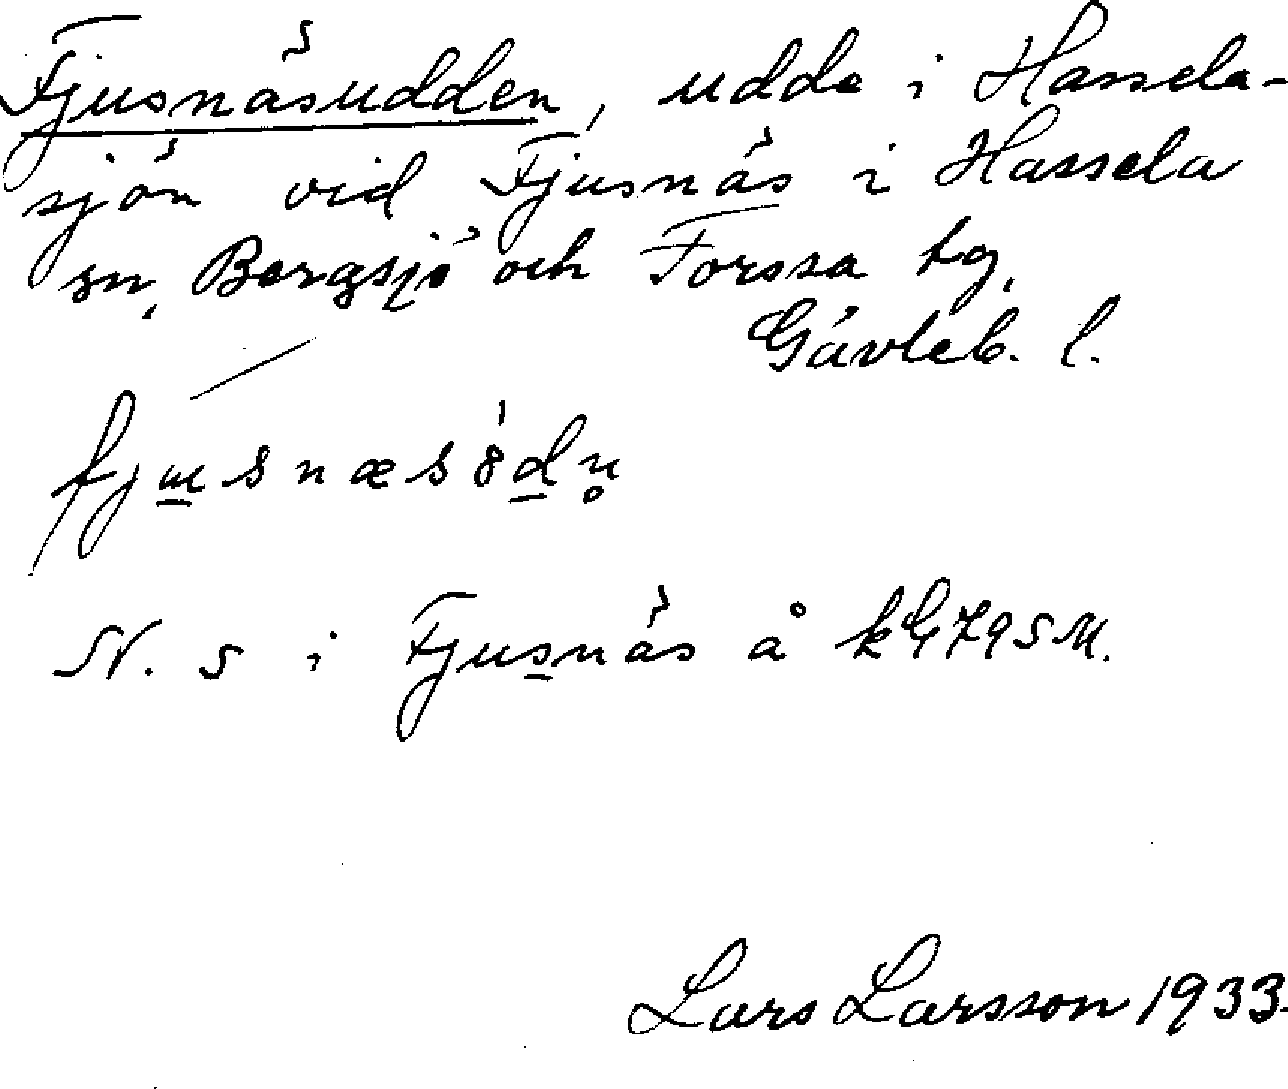 Fjusnäsudden, udde i Hassela-
sjön vid Fjusnäs i Hassela
sn, Bergsjö och Forssa tg,
Gävleb. l.
fjusnæsödn̥
N. s i Fjusnäs å kG795M.
Lars Larsson 1933.